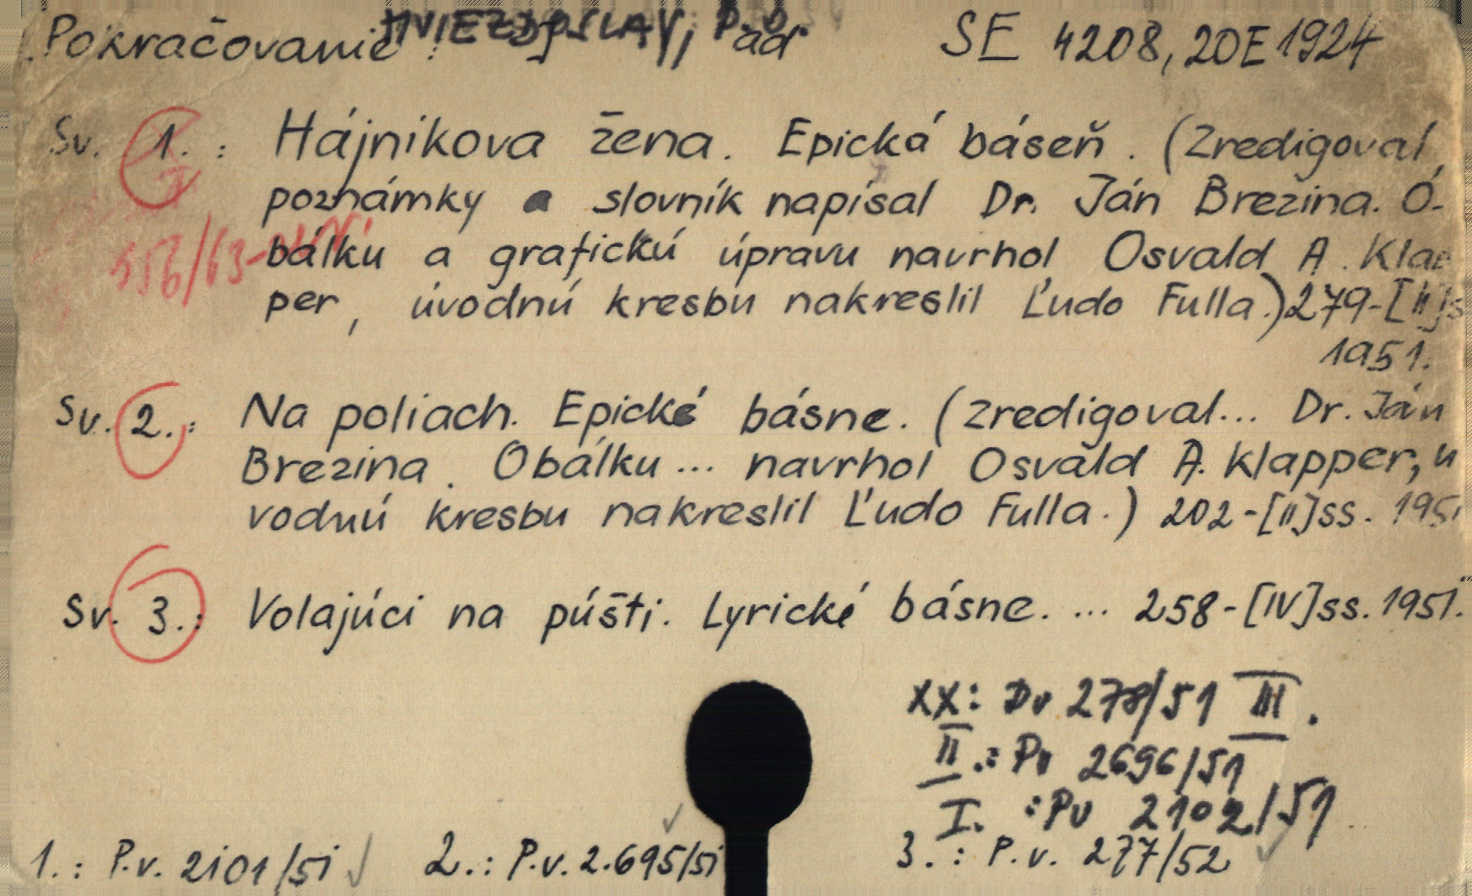 Pokračovanie: HVIEZDOSLAV, P. O. ad SE 4208, 20E1924
Sv. 1.: Hájnikova žena. Epická báseň. (Zredigoval,
poznámky a slovník napísal Dr. Ján Brezina. O-
bálku a grafickú úpravu navrhol Osvald A. Klap
per, úvodnú kresbu nakreslil Ľudo Fulla.) 279-[II]s
1951.
Sv. 2.: Na poliach. Epické básne. (Zredigoval... Dr. Ján
Brezina. Obálku... navrhol Osvald A. Klapper, ú
vodnú kresbu nakreslil Ľudo Fulla.) 202-[II]ss. 1951
Sv. 3.: Volajúci na púšti. Lyrické básne. ... 258-[IV]ss. 1951.
XX: Dv 278/51 III.
II.: Pv 2696/51
I. : Pv 2102/51
1.: P.v. 2101/51 2.: P.v. 2.695/51 3.: P.v. 277/52